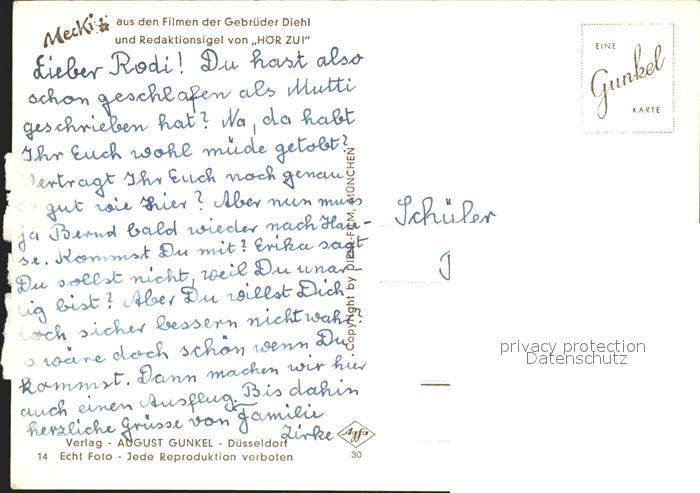 Mecki aus den Filmen der Gebrüder Diehl
und Redaktionsigel von „HÖR ZU!"
Lieber Rodi! Du hast also
schon geschlafen als Mutti
geschrieben hat? Na, da habt
Ihr Euch wohl müde getobt?
Vertragt Ihr Euch noch genau
so gut wie hier? Aber nun muss
ja Bernd bald wieder nach Hau-
se. Kommst Du mit? Erika sagt
Du sollst nicht, weil Du unar-
tig bist? Aber Du willst Dich
doch sicher bessern nicht wahr?
s wäre doch schön wenn Du
kommst. Dann machen wir hier
auch einen Ausflug. Bis dahin
herzliche Grüsse von Familie
Zirke
Verlag - AUGUST GUNKEL - Düsseldorf
14 Echt Foto - Jede Reproduktion verboten
Agfa
30
Copyright by DIEHL-FILM, MÜNCHEN
EINE
Gunkel
KARTE
Schüler
privacy protection
Datenschutz